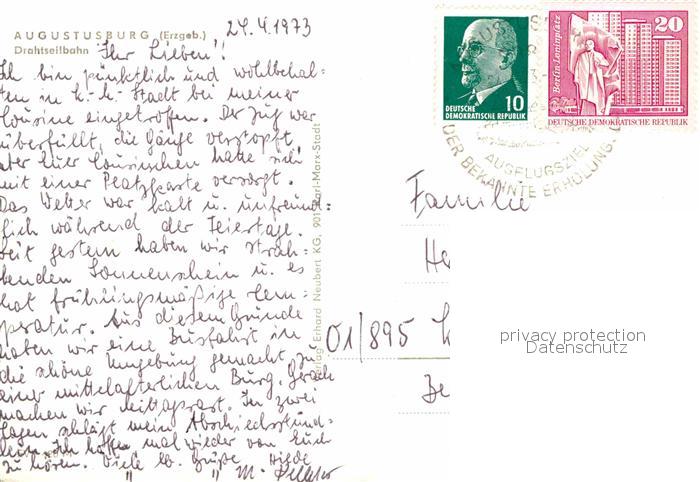 24.4.1973
AUGUSTUSBURG (Erzgeb.)
Drahtseilbahn
Ihr Lieben!
Ich bin pünktlich und wohlbehal=
ten in K.-M.-Stadt bei meiner
Cousine eingetroffen. Der Zug war
überfüllt, die Gänge verstopft,
aber Euer Cousinchen hatte sich
mit einer Platzkarte versorgt.
Das Wetter war kalt u. unfreund=
lich während der Feiertage.
Seit gestern haben wir strah=
lenden Sonnenschein u. es
hat frühlingsmäßige Tem=
peratur. Aus diesem Grunde
haben wir eine Busfahrt in
die schöne Umgebung gemacht zu
einer mittelalterlichen Burg. Gerade
machen wir Mittagsrast. In zwei
Tagen schlägt mein Abschiedsstünd=
lein. Ich hoffe, mal wieder von Euch
zu hören. Viele lb. Grüße Hilde
" " M.
Verlag Erhard Neubert KG, 901 Karl-Marx-Stadt
DEUTSCHE
DEMOKRATISCHE REPUBLIK
10
Berlin-Leninplatz
20
DEUTSCHE DEMOKRATISCHE REPUBLIK
AUSFLUGSZIEL
DER BEKANNTE ERHOLUNGS
Familie
He
01/895
Be
privacy protection
Datenschutz